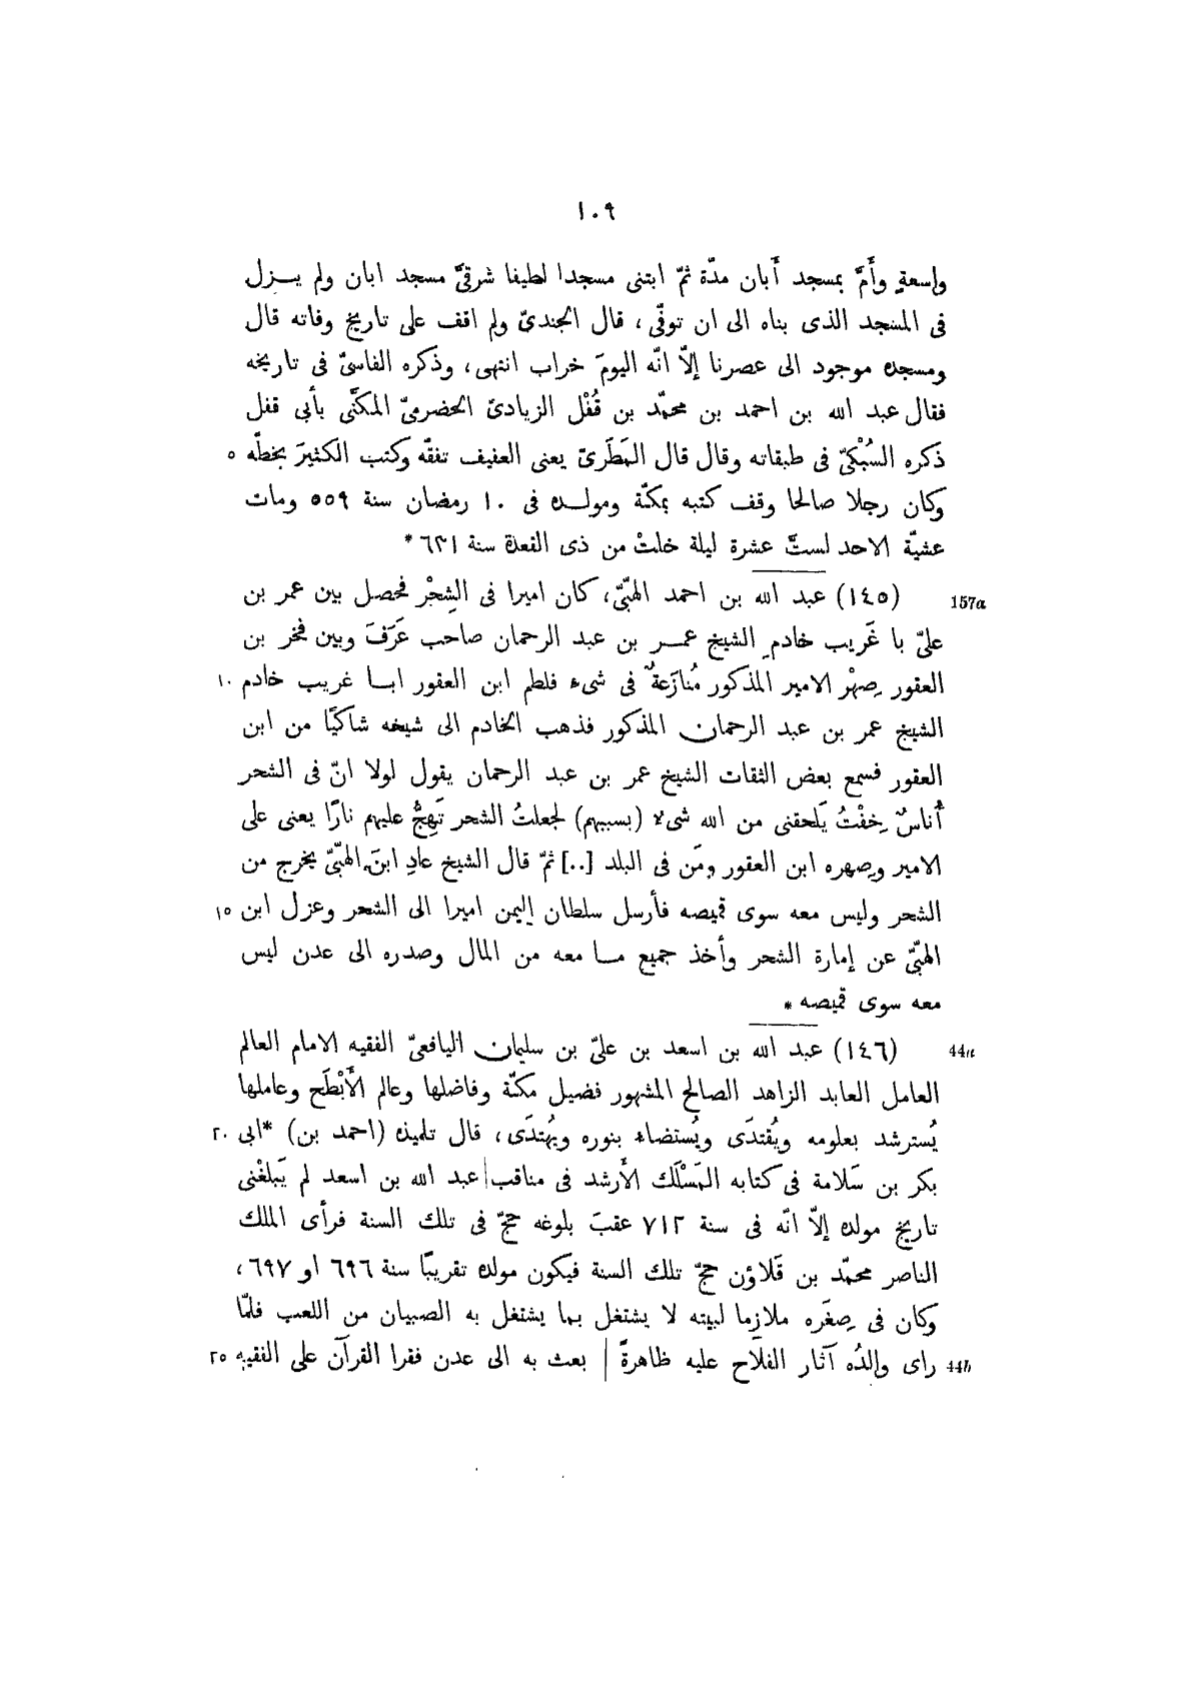 ١٠٩
واسعةٍ وأَمَّ بمسجد أَبان مدّة ثمّ ابتنى مسجدا لطيفا شرقىَّ مسجد ابان ولم يـزل
فى المسجد الذى بناه الى ان توفّى، قال الجندىّ ولم اقف على تاريخ وفاته قال
ومسجده موجود الى عصرنا إلاّ انّه اليومَ خراب انتهى، وذكره الفاسىّ فى تاريخه
فقال عبد الله بن احمد بن محمّد بن قُفْل الزيادىّ الحضرمىّ المكنَّى بأبى قفل
ذكره السُبْكىّ فى طبقاته وقال قال المَطَرىّ يعنى العفيف تفقّه وكتب الكثيرَ بخطّه ٥
وكان رجلا صالحا وقف كتبه بمكّة ومولـده فى ١٠ رمضان سنة ٥٥٩ ومات
عشيّة الاحد لستَّ عشرة ليلة خلتْ من ذى القعدة سنة ٦٣١*
157a (١٤٥) عبد الله بن احمد الهبّىّ، كان اميرا فى الشِحْر فحصل بين عمر بن
علىّ با غَريب خادمِ الشيخ عمـر بن عبد الرحمان صاحب عَرَفَ وبين فخر بن
العقور صِهْرِ الامير المذكور مُنازَعةٌ فى شىء فلطم ابن العقور ابـا غريب خادم ١٠
الشيخ عمر بن عبد الرحمان المذكور فذهب الخادم الى شيخه شاكيًا من ابن
العقور فسمع بعض الثقات الشيخ عمر بن عبد الرحمان يقول لولا انّ فى الشحر
أُناسٌ خِفْتُ يَلحقنى من الله شىء (بسببهم) لجعلتُ الشحر تَهِجُّ عليهم نارًا يعنى على
الامير وصِهره ابن العقور ومَن فى البلد [..] ثمّ قال الشيخ عادِ ابنَ الهبّىّ يخرج من
الشحر وليس معه سوى قميصه فأرسل سلطان اليمن اميرا الى الشحر وعزل ابن ١٥
الهبّىّ عن إمارة الشحر وأخذ جميع مـا معه من المال وصدره الى عدن ليس
معه سوى قميصه *
44a (١٤٦) عبد الله بن اسعد بن علىّ بن سليمان اليافعىّ الفقيه الامام العالم
العامل العابد الزاهد الصالح المشهور فضيل مكّة وفاضلها وعالم الأَبْطَح وعاملها
يُسترشد بعلومه ويُقتدَى ويُستضاء بنوره ويُهتدَى، قال تلميذه (احمد بن) *ابى ٢٠
بكر بن سَلامة فى كتابه المَسْلَك الأَرشد فى مناقب| عبد الله بن اسعد لم يَبلغْنى
تاريخ مولده إلاّ انّه فى سنة ٧١٢ عقبَ بلوغه حجّ فى تلك السنة فرأى الملك
الناصر محمّد بن قَلاوُن حجّ تلك السنة فيكون مولده تقريبًا سنة ٦٩٦ او ٦٩٧،
وكان فى صِغَره ملازما لبيته لا يشتغل بما يشتغل به الصبيان من اللعب فلمّا
44b راى والدُه آثار الفلاح عليه ظاهرةً | بعث به الى عدن فقرا القرآن على الفقيه ٢٥